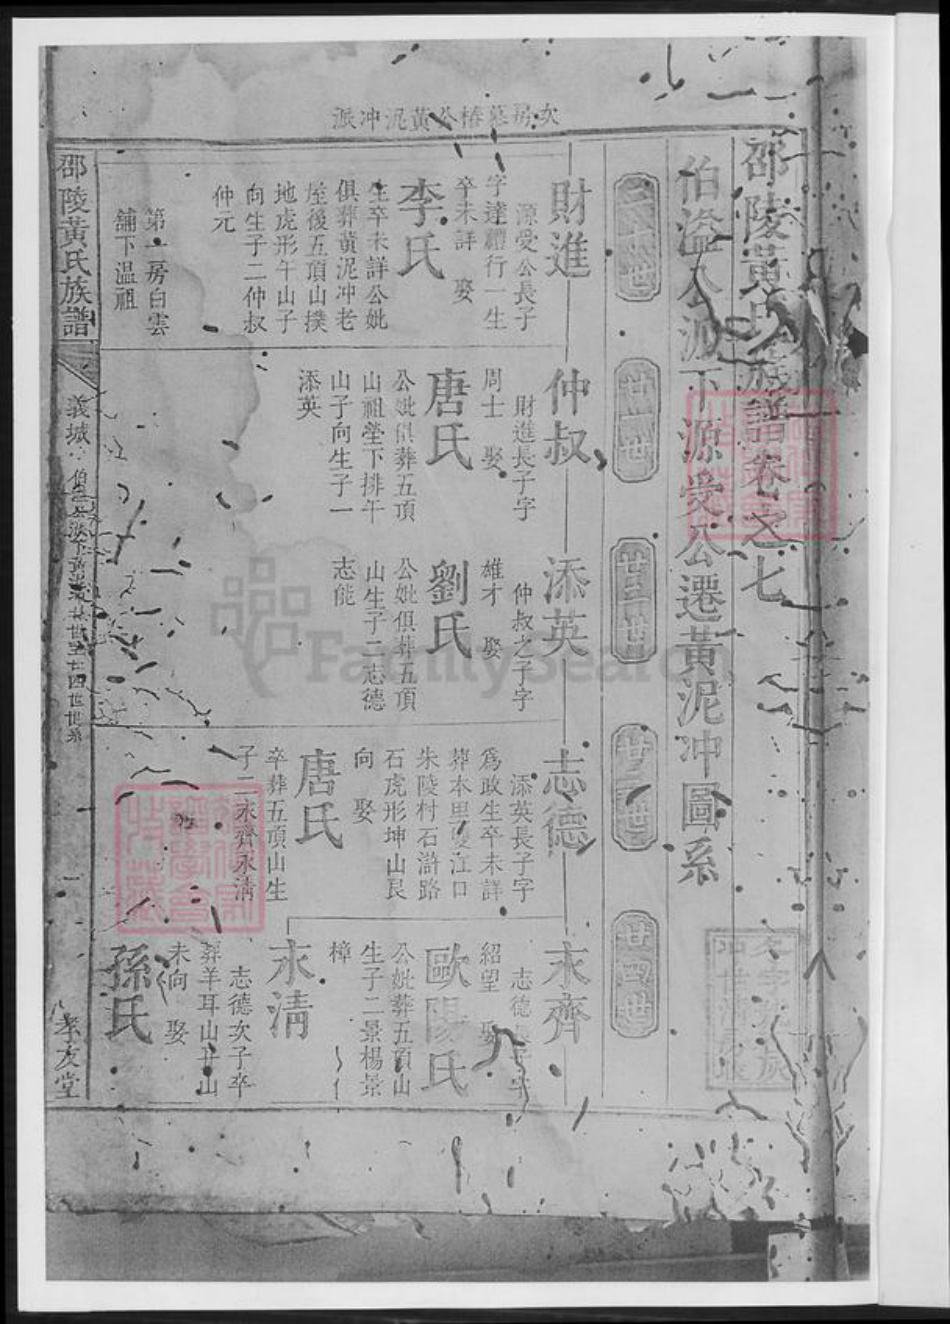 次房慕椿公黃泥冲派
邵陵黃氏族譜卷之七
伯溢公派下源受公遷黃泥冲圖系
世
廿世
廿世
廿世
廿四世
財進
源受公長子
字達禮行一生
卒未詳 娶
李氏
生卒未詳公妣
俱葬黃泥冲老
屋後五頂山撲
地虎形午山子
向生子二仲叔
仲元
第一房白雲
舖下温祖
仲叔
財進長子字
周士 娶
唐氏
公妣俱葬五頂
山祖塋下排午
山子向生子一
添英
添英
仲叔之子字
雄才 娶
劉氏
公妣俱葬五頂
山生子二志德
志能
志德
添英長子字
爲政生卒未詳
葬本里雙江口
朱陵村石滸路
石虎形坤山艮
向 娶
唐氏
卒葬五頂山生
子二永齊永清
永齊
志德長子字
紹望 娶
歐陽氏
公妣葬五頂山
生子二景楊景
樟
永清
志德次子卒
葬羊耳山丑山
未向 娶
孫氏
邵陵黃氏族譜
義城
孝友堂
FamilySearch